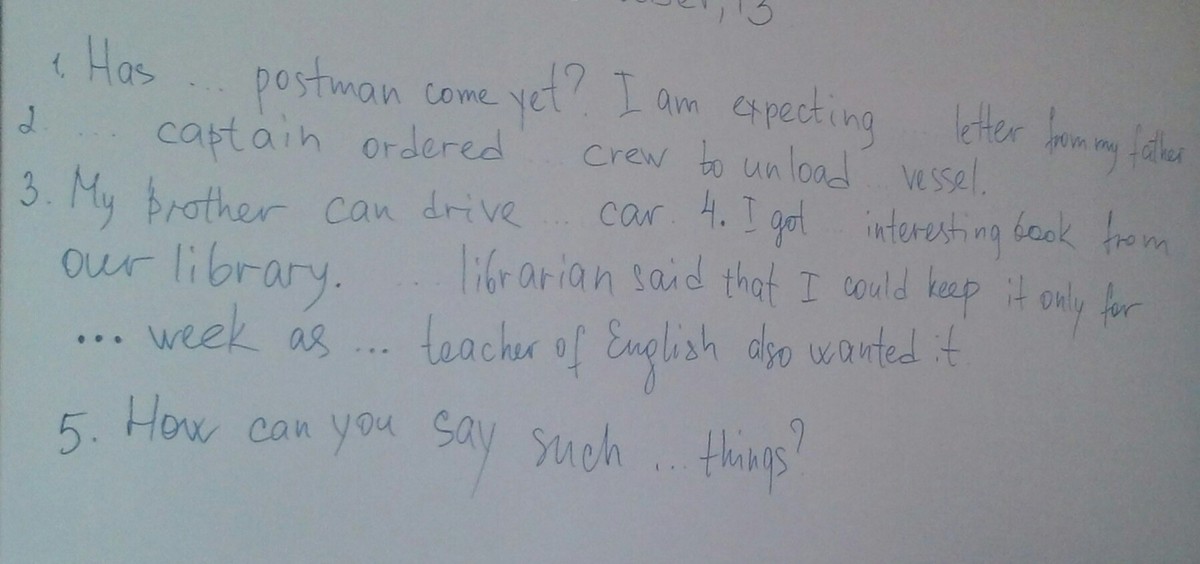 , 13
1. Has ... postman come yet? I am expecting ... letter from my father
2. ... captain ordered ... crew to unload ... vessel.
3. My brother can drive ... car. 4. I got ... interesting book from
our library. ... librarian said that I could keep it only for
... week as ... teacher of English also wanted it.
5. How can you say such ... things?